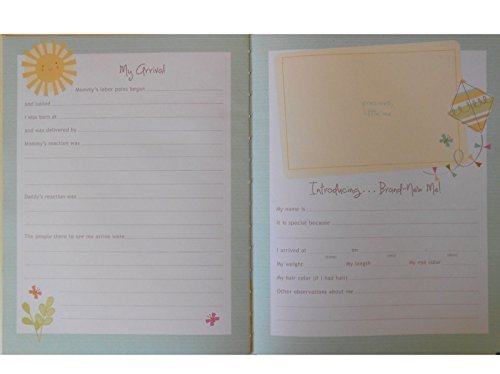 My Arrival
Mommy's labor pains began
and lasted
I was born at
and was delivered by
Mommy's reaction was
Daddy's reaction was
The people there to see me arrive were
precious,
little me
Introducing... Brand-New Me!
My name is
It is special because
I arrived at on
(time) (date)
My weight My length My eye color
My hair color (if I had hair)
Other observations about me